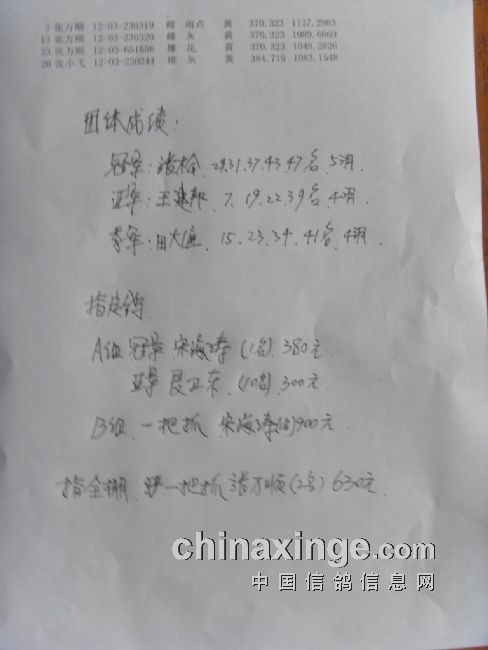 2 张万顺 12-03-230319 雌 雨点 黄 370.323 1137.2983
13 张万顺 12-03-230320 雄 灰 黄 370.323 1089.6669
33 张万顺 12-03-651656 雄 花 黄 370.323 1048.2826
20 张小飞 12-03-230244 雄 灰 黄 384.719 1083.1548
团体成绩:
冠军: 29.31.37.43.47名, 5羽
亚军: 王建邦 7.19.22.39名, 4羽
季军: 田大 15.23.34.41名, 4羽
指定鸽
A组 冠军 宋海涛 (1名) 380元
亚军 卫东 (10名) 300元
B组 一把抓 宋海涛 900元
指全棚 一把抓 张万顺(2名) 630元
chinaxinge.com
中国信鸽信息网